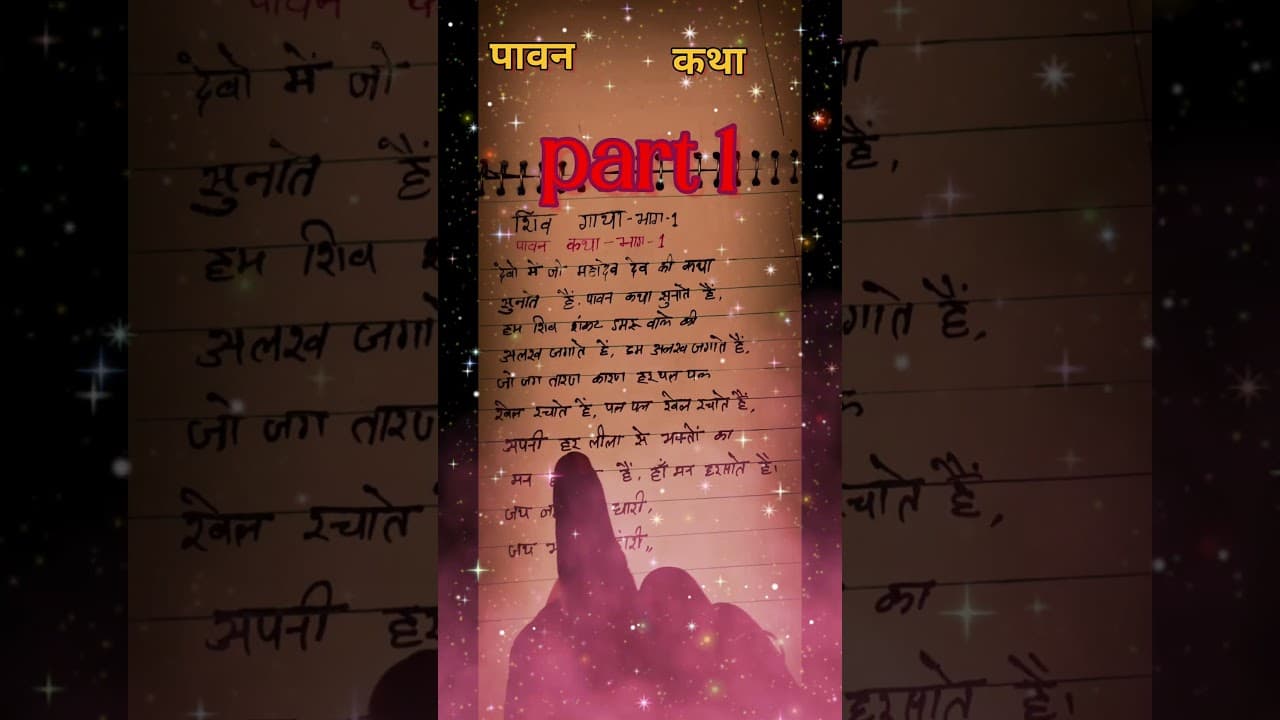 पावन कथा
part 1
शिव गाथा - भाग-1
पावन कथा - भाग-1
देवो में जो महादेव देव की कथा
सुनाते हैं, पावन कथा सुनाते हैं,
हम शिव शंकट डमरू वाले की
अलख जगाते हैं, हम अलख जगाते हैं,
जो जग तारण कारण हर पल पल
खेल रचाते हैं, पल पल खेल रचाते हैं,
अपनी हर लीला से भक्तों का
मन हैं, हाँ मन हरसाते हैं।
जय धारी,
जय